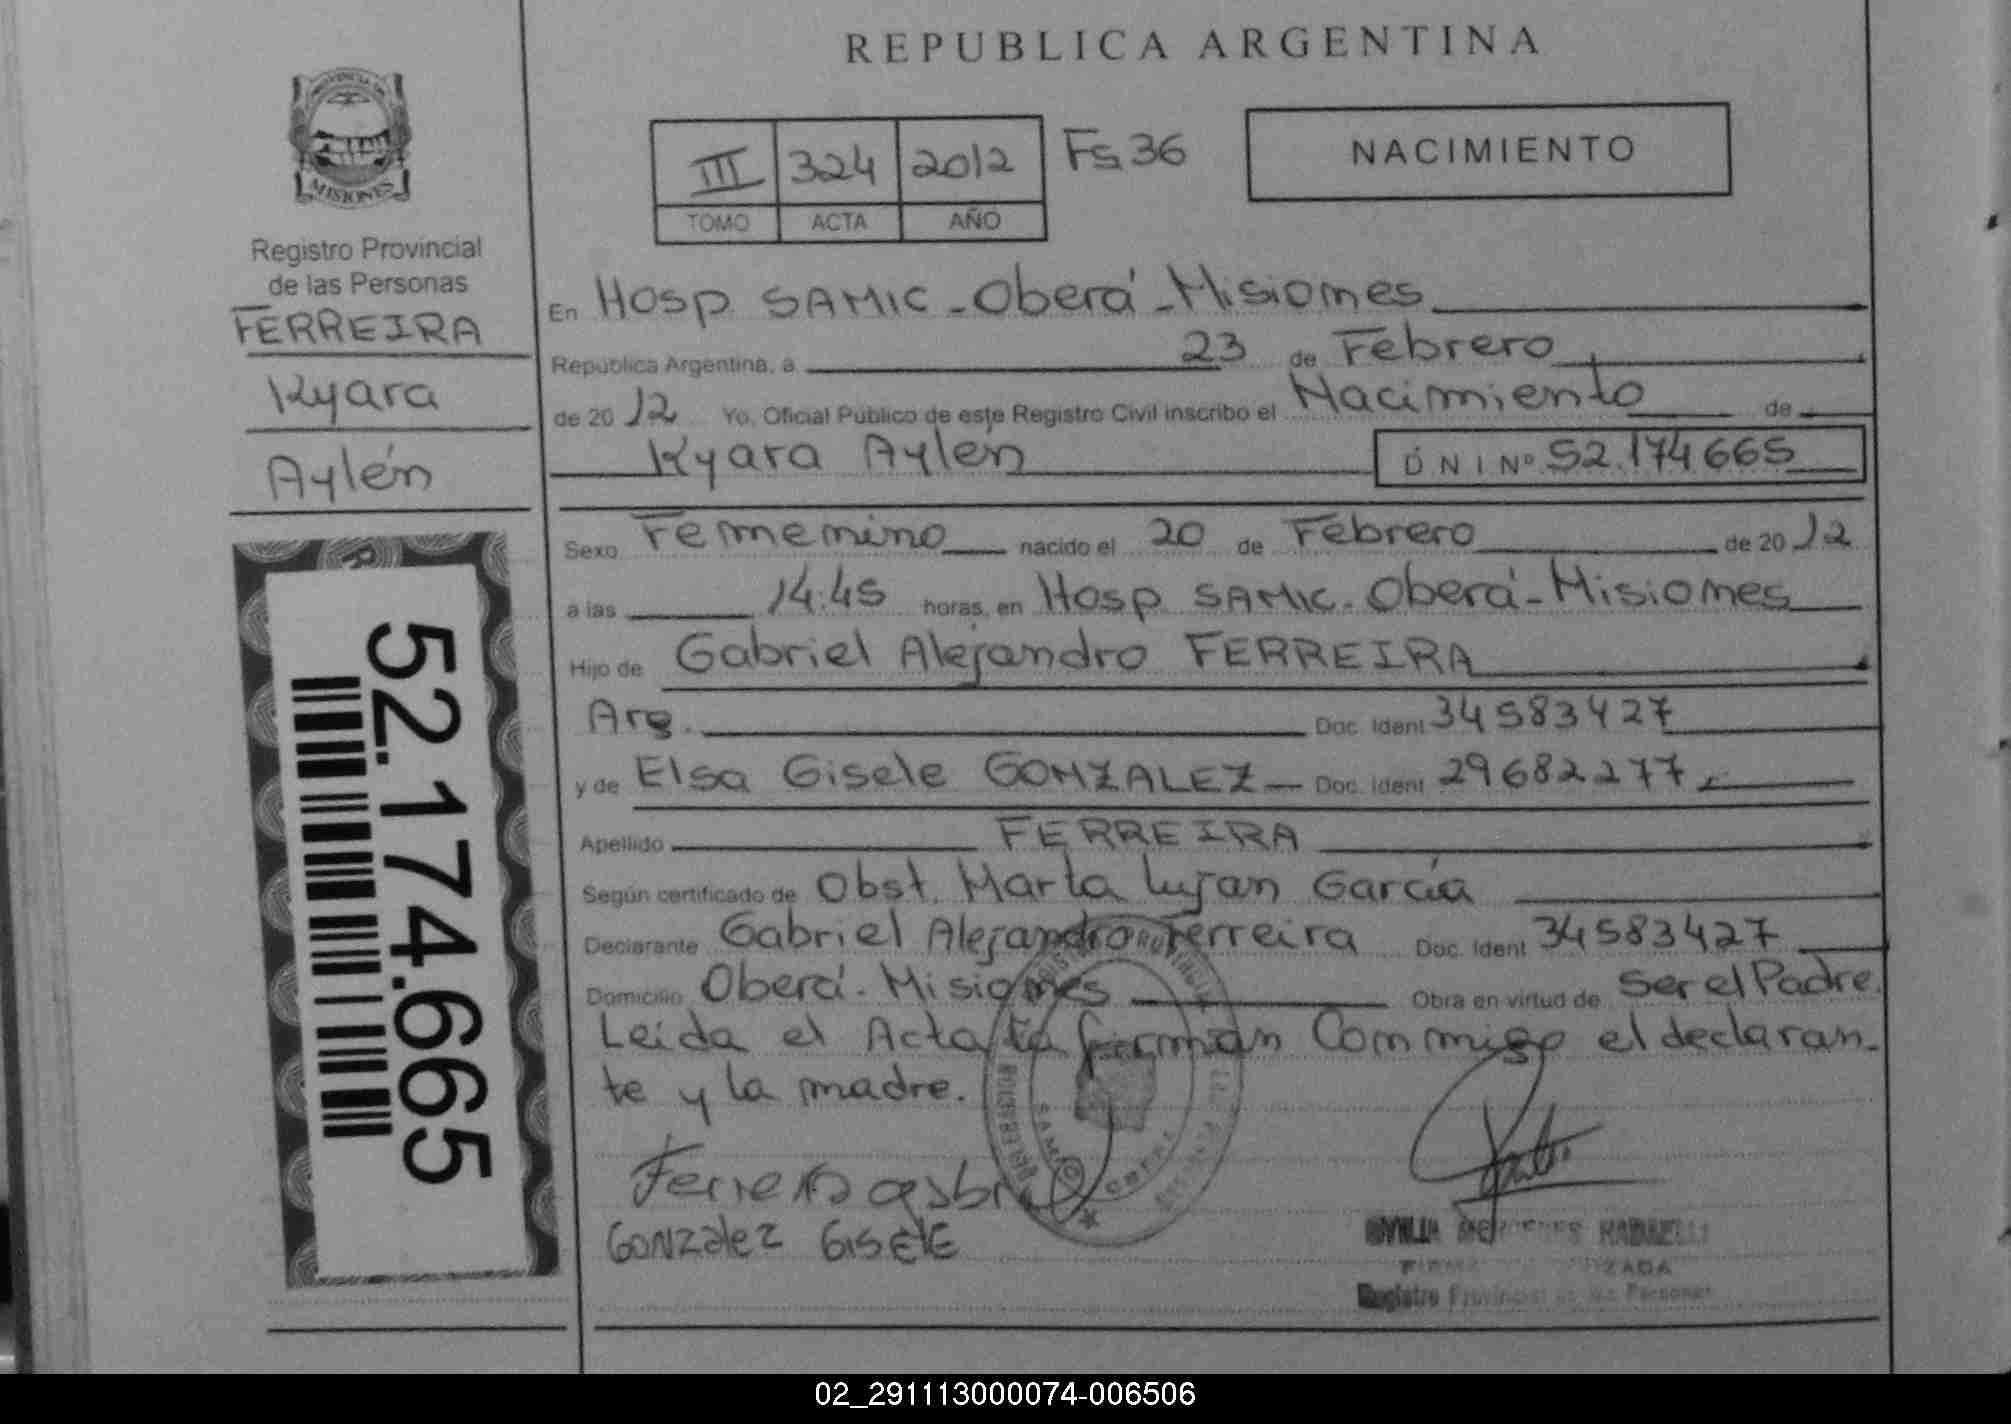 REPUBLICA ARGENTINA
PROVINCIA DE
MISIONES
Registro Provincial
de las Personas
FERREIRA
Kyara
Aylén
52.174.665
III 324 2012 Fs 36
TOMO ACTA AÑO
NACIMIENTO
En Hosp SAMIC - Oberá - Misiones
República Argentina, a 23 de Febrero
de 2012 Yo, Oficial Público de este Registro Civil inscribo el Nacimiento de
Kyara Aylén DNI Nº 52.174665
Sexo Femenino nacido el 20 de Febrero de 2012
a las 14:45 horas, en Hosp SAMIC - Oberá - Misiones
Hijo de Gabriel Alejandro FERREIRA
Arg. Doc. Ident 34583427
y de Elsa Gisele GONZALEZ Doc. Ident 29682277
Apellido FERREIRA
Según certificado de Obst. Marta Lujan García
Declarante Gabriel Alejandro Ferreira Doc. Ident 34583427
Domicilio Oberá - Misiones Obra en virtud de Ser el Padre.
Leida el Acta la firman Conmigo el declaran-
te y la madre.
Ferreira Gabriel
GONZalEZ GISELE
SAMIC OBERA
Registro Provincial de las Personas
02_291113000074-006506